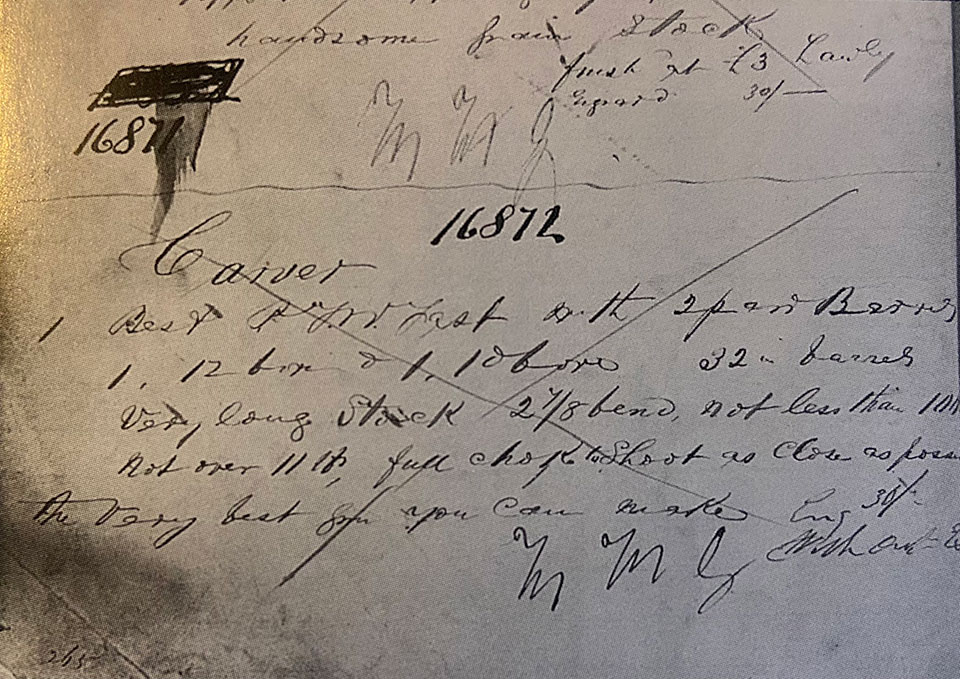 handsome grain Stock
finish at £3 Lawley
Engravd 30/-
16871
16872
Carver
1 Best Fast with 2 pair Barrels
1, 12 bore & 1, 10 bore 32 in barrels
Very long Stock 2 7/8 bend, not less than
Not over 11 lb, full choke to Shoot as Close as
the Very best gun you can make Eng 30/-
Without
265